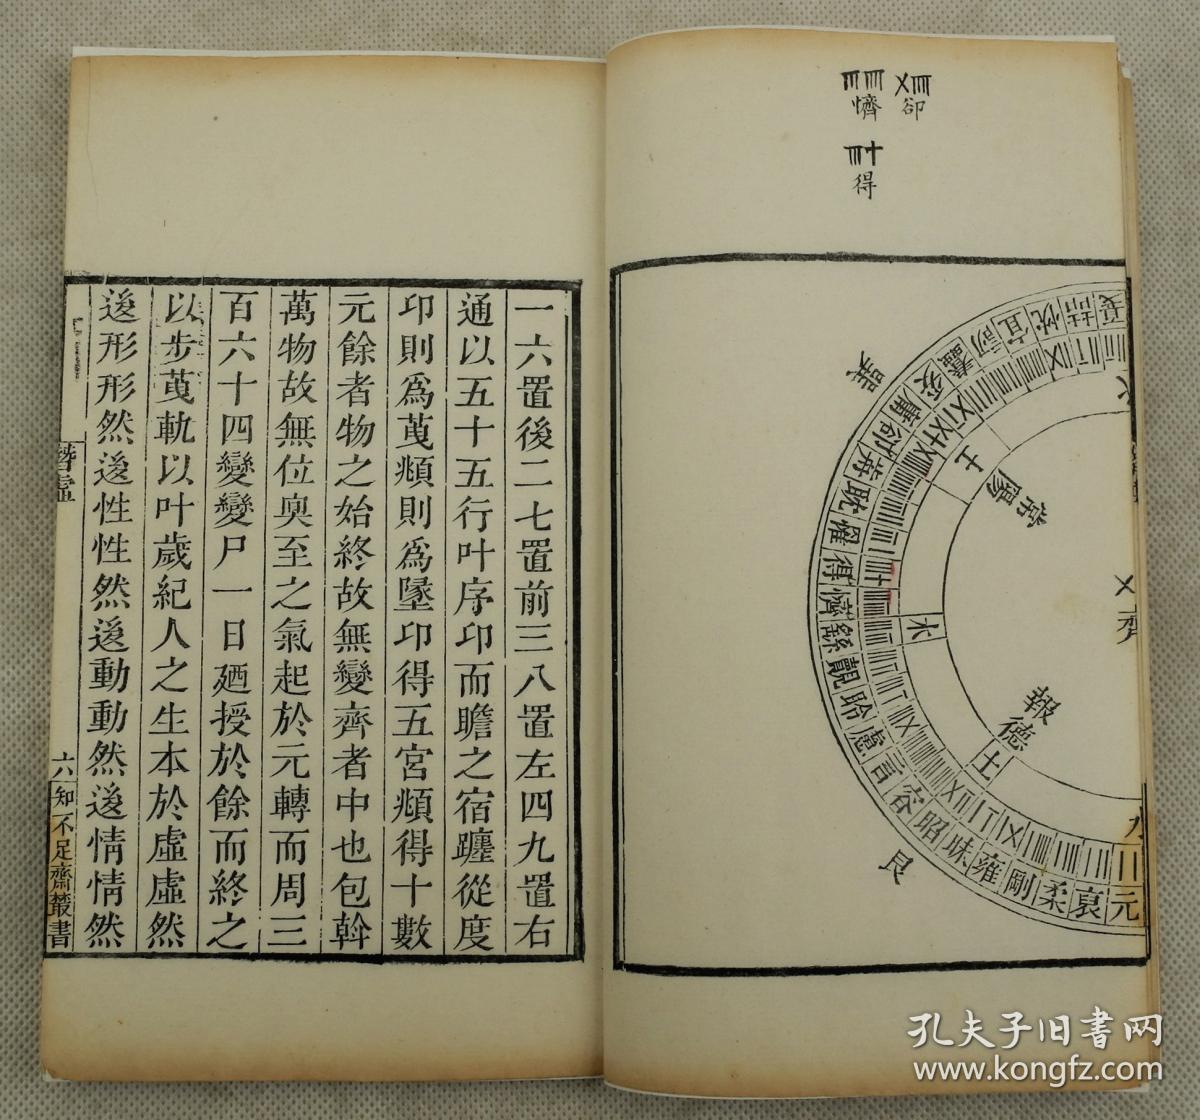 卻
懠
得
㢲
常陽
土
齊
水
報德
土
艮
夏喆忱宜訒蠢妥庸卻莽耽懼得懠繇覿聆慮言容昭昧雍剛柔裒元
一六置後二七置前三八置左四九置右
通以五十五行叶序卬而瞻之宿躔從度
卬則爲萈頫則爲墜卬得五宮頫得十數
元餘者物之始終故無變齊者中也包斡
萬物故無位奥至之氣起於元轉而周三
百六十四變變尸一日廼授於餘而終之
以步萈軌以叶歲紀人之生本於虛虛然
後形形然後性性然後動動然後情情然
潛虛
六
知不足齋叢書
孔夫子旧书网
www.kongfz.com